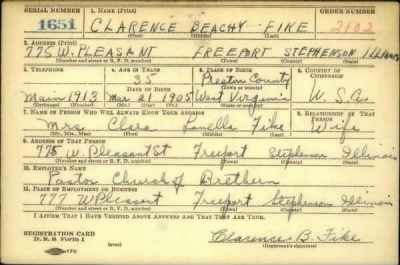 SERIAL NUMBER 1. NAME (Print) ORDER NUMBER
1651 CLARENCE BEACHY FIKE 2102
(First) (Middle) (Last)
2. ADDRESS (Print)
775 W. PLEASANT FREEPORT STEPHENSON ILLINOIS
(Number and street or R. F. D. number) (Town) (County) (State)
3. TELEPHONE 4. AGE IN YEARS 5. PLACE OF BIRTH 6. COUNTRY OF CITIZENSHIP
35 Preston County
DATE OF BIRTH (Town or county)
Main 1913 Mar 21 1905 West Virginia U.S.A.
(Exchange) (No.) (Mo.) (Day) (Yr.) (State or country)
7. NAME OF PERSON WHO WILL ALWAYS KNOW YOUR ADDRESS 8. RELATIONSHIP OF THAT PERSON
Mrs. Clara Luella Fike Wife
(Mr., Mrs., Miss) (First) (Middle) (Last)
9. ADDRESS OF THAT PERSON
775 W. Pleasant St Freeport Stephenson Illinois
(Number and street or R. F. D. number) (Town) (County) (State)
10. EMPLOYER'S NAME
Pastor Church of Brethern
11. PLACE OF EMPLOYMENT OR BUSINESS
777 W Pleasant Freeport Stephenson Illinois
(Number and street or R. F. D. number) (Town) (County) (State)
I AFFIRM THAT I HAVE VERIFIED ABOVE ANSWERS AND THAT THEY ARE TRUE.
REGISTRATION CARD
D. S. S. Form 1 (over) Clarence B. Fike
(Registrant's signature)